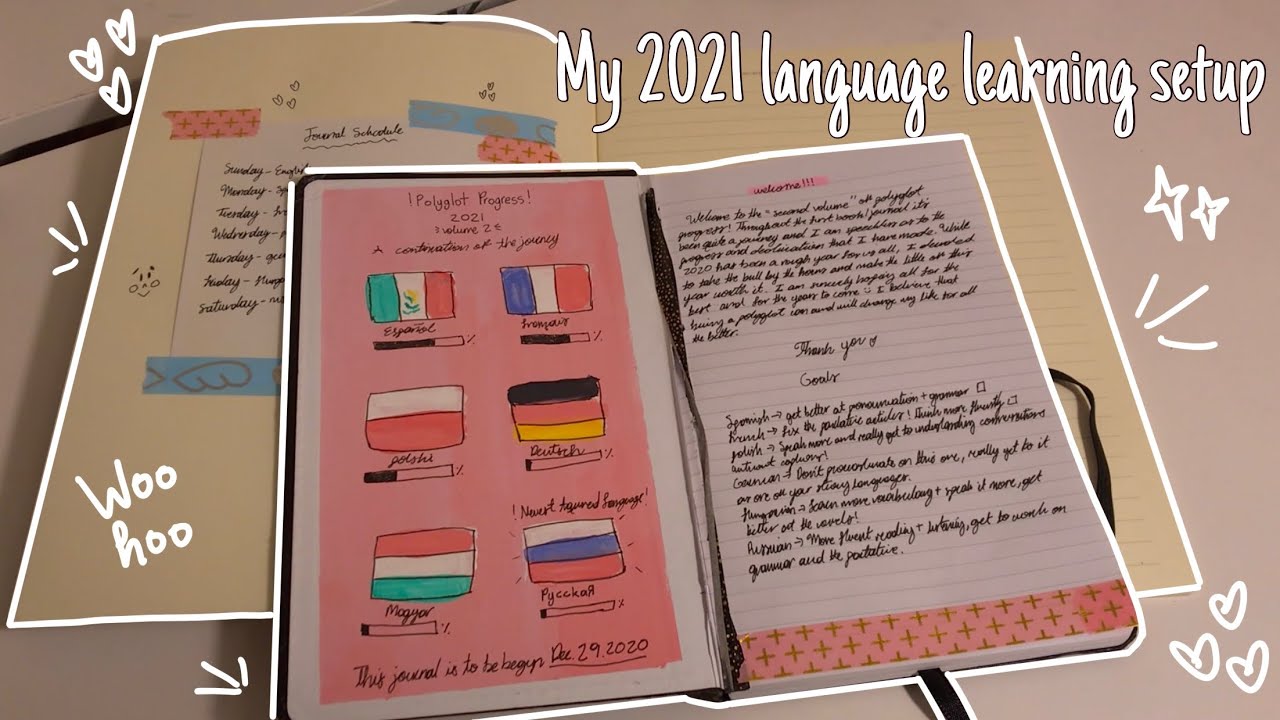 My 2021 language learning setup
Journal Schedule
Sunday-
Monday-
Tuesday-
Wednesday-
Thursday-
Friday-
Saturday-
Woo
hoo
! Polyglot Progress!
2021
volume 2
continuation of the journey
Español
%
français
%
polski
%
Deutsch
%
! Newest Aquired language!
Magyar
%
Русская
%
This journal is to be begun Dec. 29. 2020
welcome!!!
Welcome to the "second volume" of polyglot
progress! Throughout the first book/journal it's
been quite a journey and I am speechless as to the
progress and dedication that I have made. While
2020 has been a rough year for us all, I decided
to take the bull by the horns and make the little of this
year worth it. I am sincerely hoping all for the
best and for the year to come I believe that
being a polyglot can and will change my life for all
the better.
Thank you
Goals
Spanish → get better at pronounciation + grammar
French → fix the partative articles! Think more fluently
Polish → Speak more and really get to understanding conversations
without captions!
German → Don't procrastinate on this one, really get to it
as one of your strong languages.
Hungarian → Learn more vocabulary + speak it more, get
better at the vowels!
Russian → More fluent reading + listening, get to work on
grammar and the partative.